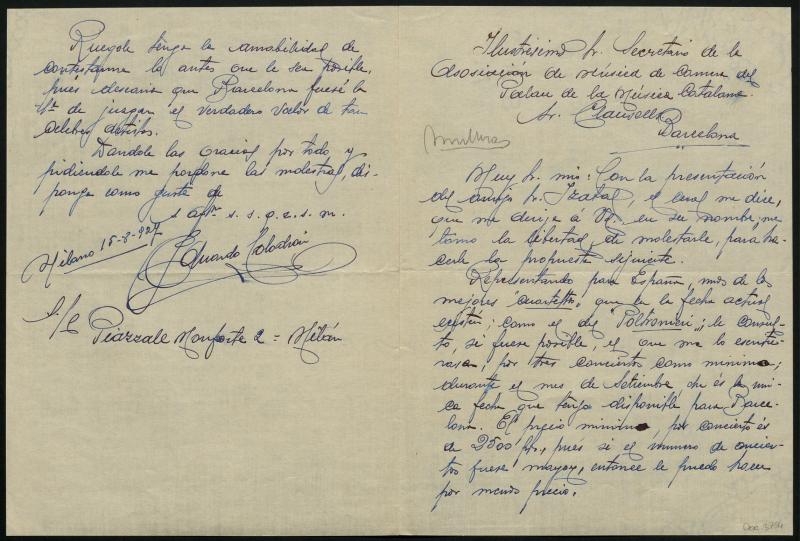 Ilustrísimo Sr. Secretario de la
Asosiación de Músicd de Camera del
Palau de la Música Catalana.
Sr. Clausells
Barcelona
Muy Sr. mio: Con la presentación
del amigo Sr. Izabal, el cual me dice,
que me dirija a Vd. en su nombre, me
tomo la libertad, de molestarle, para ha-
cerle la propuesta siguiente.
Representando para España, unos de los
mejores "cuartetto", que en la fecha actual
existen; como el del "Poltronieri"; le consul-
to, si fuese posible, el que me lo escritu-
rasen, por tres conciertos como minimo;
durante el mes de Setiembre, que és la uni-
ca fecha que tengo disponible para Barce-
lona. El precio minimo, por concierto és
de 2500 pts, pués si el numero de concier-
tos fuese mayor, entonce le puedo hacer
por menos precio.
Ruegole tenga la amabilidad de
contestarme lo antes que le sea posible,
pués desearia que Barcelona fuese la
1ª de juzgar el verdadero valor de tan
celebres artistas.
Dandole las gracias por todo y
pidiendole me perdone las molestias, dis-
ponga como guste de
s. s. q. e. s. m.
Milano 15-8-927
Eduardo
S/C Piazzale Monforte 2 = Milán
Doc. 3754